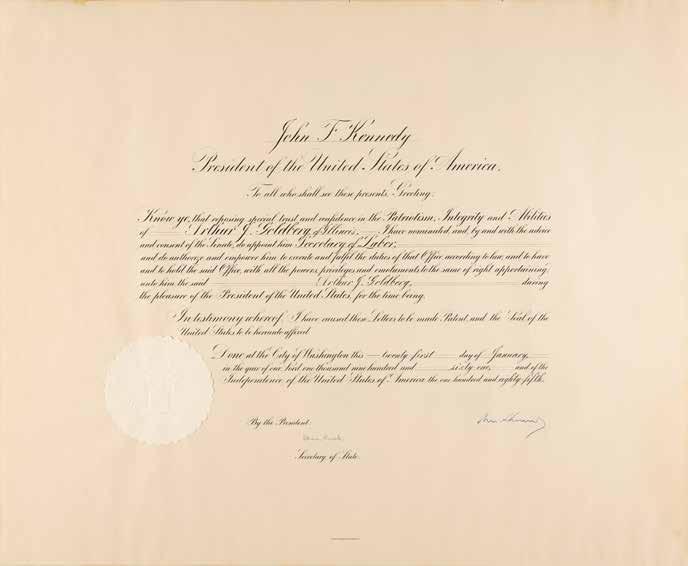 John F Kennedy
President of the United States of America.
To all who shall see these presents, Greeting:
Know ye, that reposing special trust and confidence in the Patriotism, Integrity and Abilities
of Arthur J. Goldberg, of Illinois, I have nominated, and, by and with the advice
and consent of the Senate, do appoint him Secretary of Labor,
and do authorize and empower him to execute and fulfil the duties of that Office according to law, and to have
and to hold the said Office, with all the powers, privileges and emoluments to the same of right appertaining,
unto him the said Arthur J. Goldberg, during
the pleasure of the President of the United States, for the time being.
In testimony whereof, I have caused these Letters to be made Patent, and the Seal of the
United States to be hereunto affixed.
Done at the City of Washington this twenty first day of January,
in the year of our Lord one thousand nine hundred and sixty one, and of the
Independence of the United States of America the one hundred and eighty fifth.
By the President:
Secretary of State.